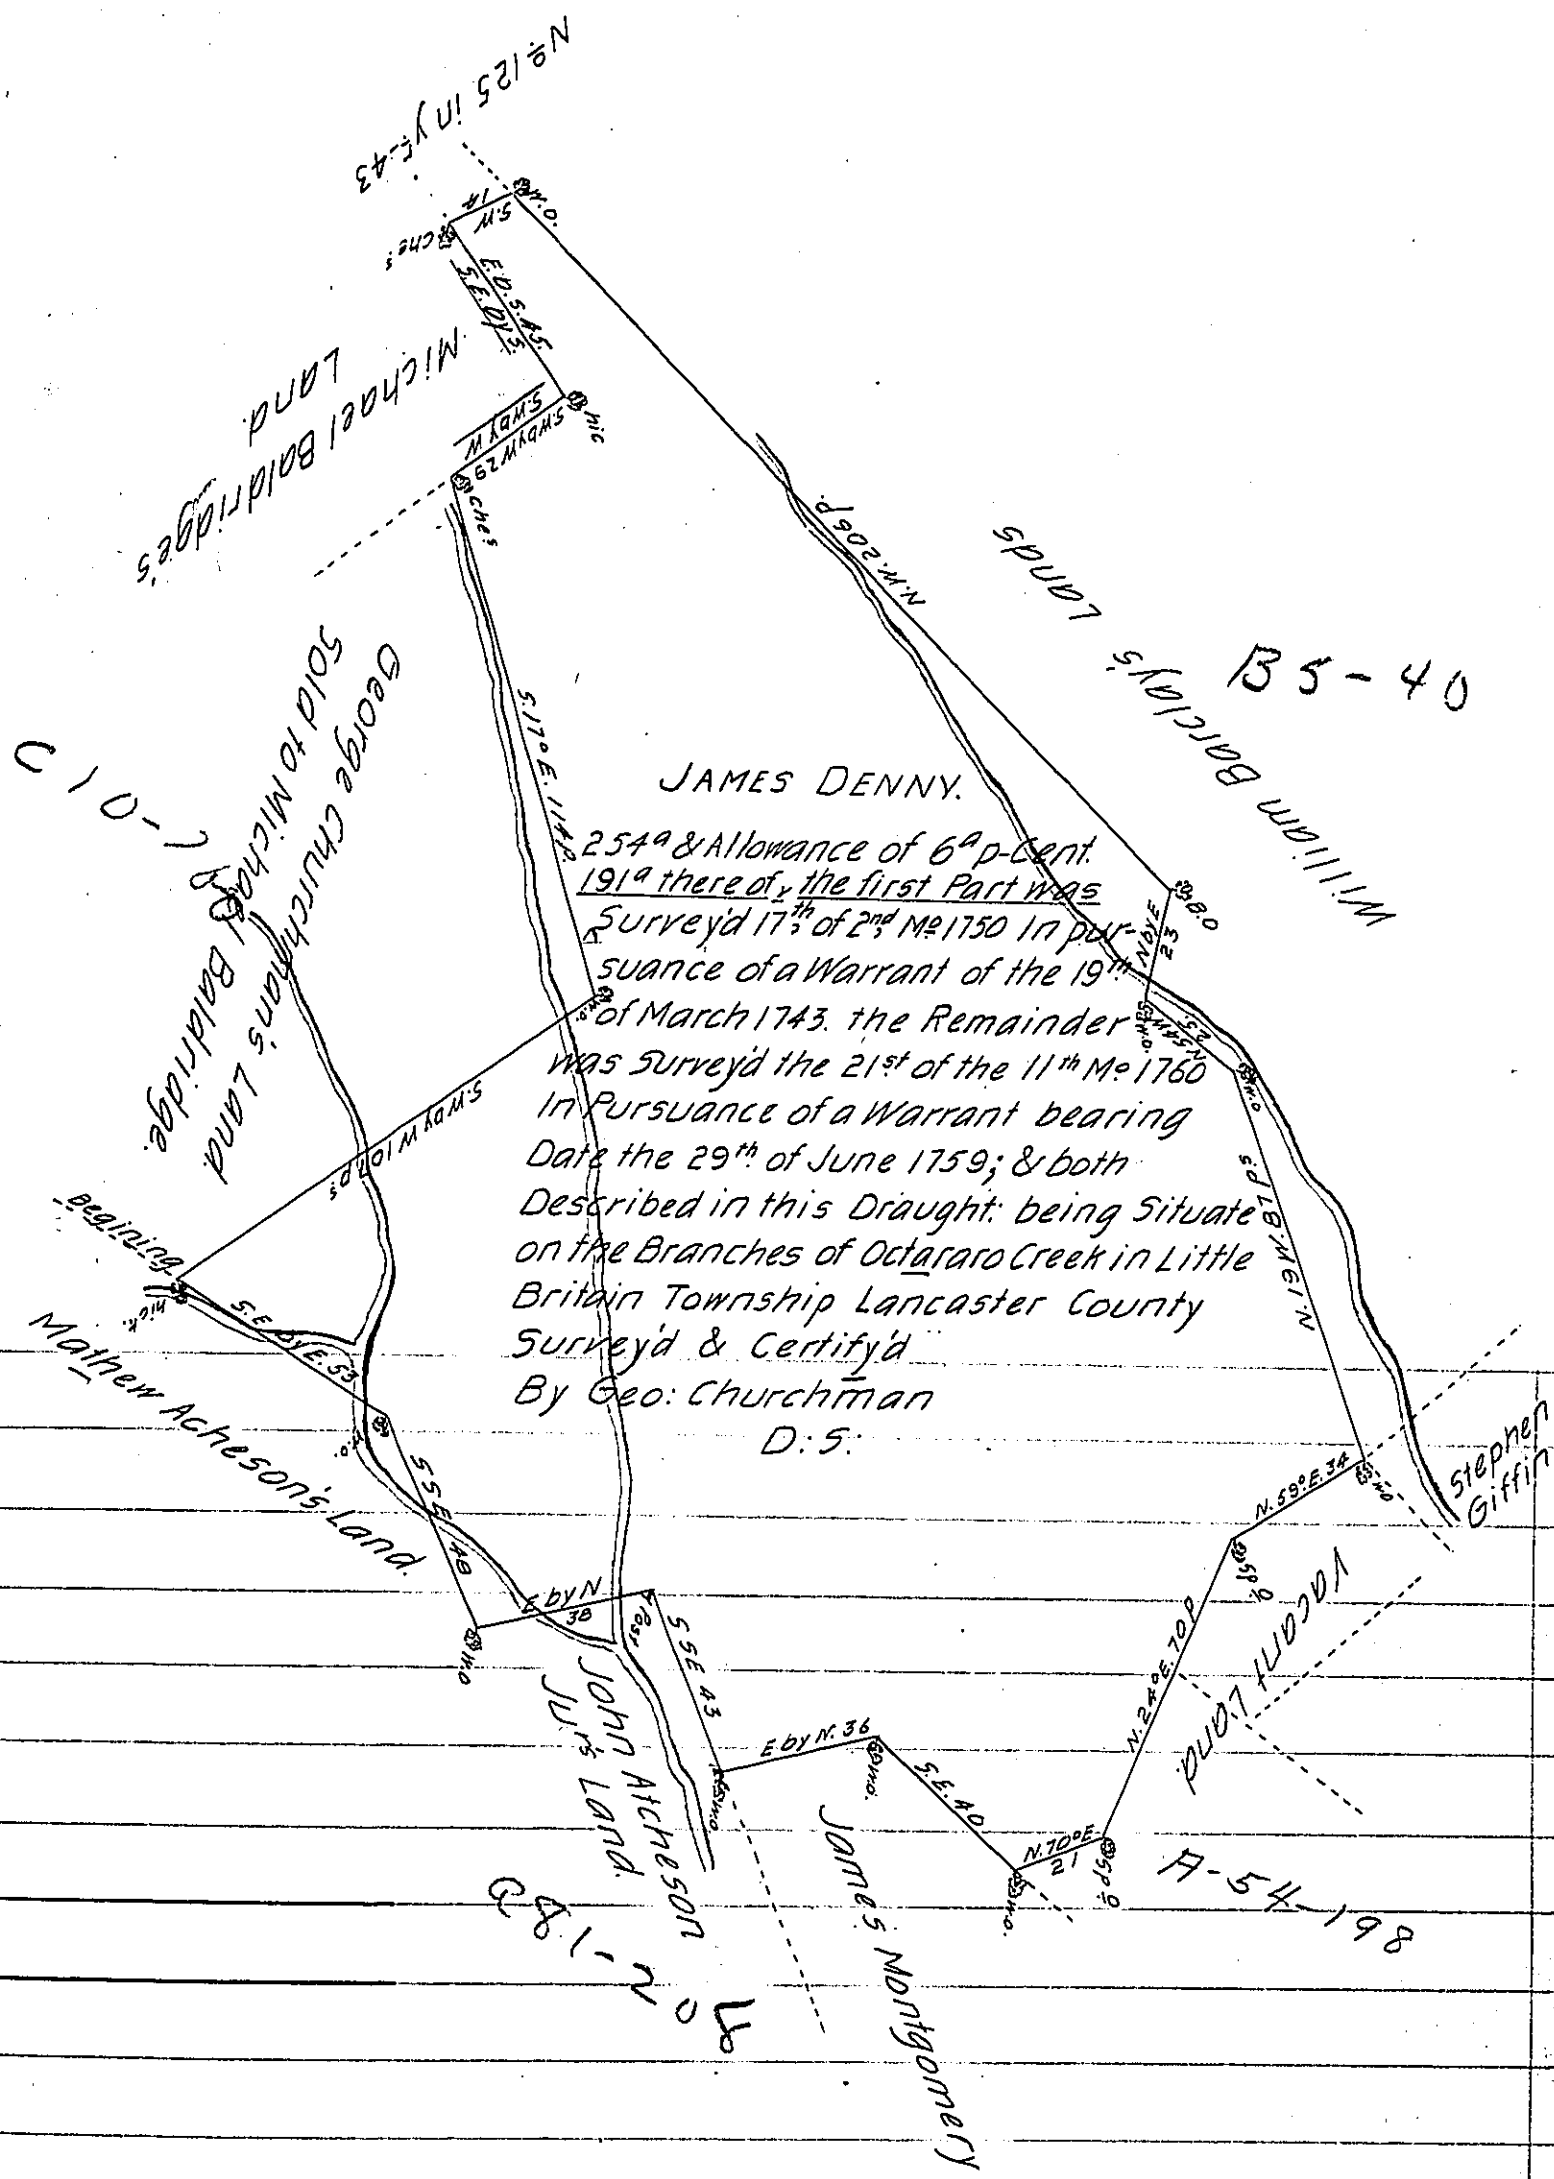 Nº 125 in yᵉ 43
S.W
14
W.O.
Cheˢ
E.D.S. 45.
S.E. by S.
hic
S.W by W 29
S.W by W
Cheˢ
Michael Baldridge's
Land.
N.W. 206 p.
William Barclay's Lands
B 5 - 40
George Churchman's Land
Sold to Michael Baldridge.
S. 17° E. 114 P.
JAMES DENNY.
254ᵃ & Allowance of 6ᵃ p-Cent.
191ᵃ there of, the first Part was
Survey'd 17ᵗʰ of 2ⁿᵈ Mº 1750 In pur-
suance of a Warrant of the 19ᵗʰ
of March 1743. the Remainder
was Survey'd the 21ˢᵗ of the 11ᵗʰ Mº 1760
In Pursuance of a Warrant bearing
Date the 29ᵗʰ of June 1759; & both
Described in this Draught: being Situate
on the Branches of Octararo Creek in Little
Britain Township Lancaster County
Survey'd & Certify'd
By Geo: Churchman
D: S:
B.O
N by E
23
W.O.
N 54 W
25.
W.O
N. 19 W. 87 Pˢ
W.O.
S.W by W 107 Pˢ
Begining
hick.
S.E. by E. 53
W.O.
Mathew Acheson's Land.
S S E
48
W.O
E by N
38
Post
S S E 43
W.O.
John Atcheson
Juʳˢ Land.
E by N. 36
W.O.
S.E. 40
W.O.
James Montgomery
N. 70° E
21
Sp. O
N. 24° E. 70 P
Sp. O.
N. 59° E. 34
W.O
Stephen
Giffin
Vacant Land.
A-54-198